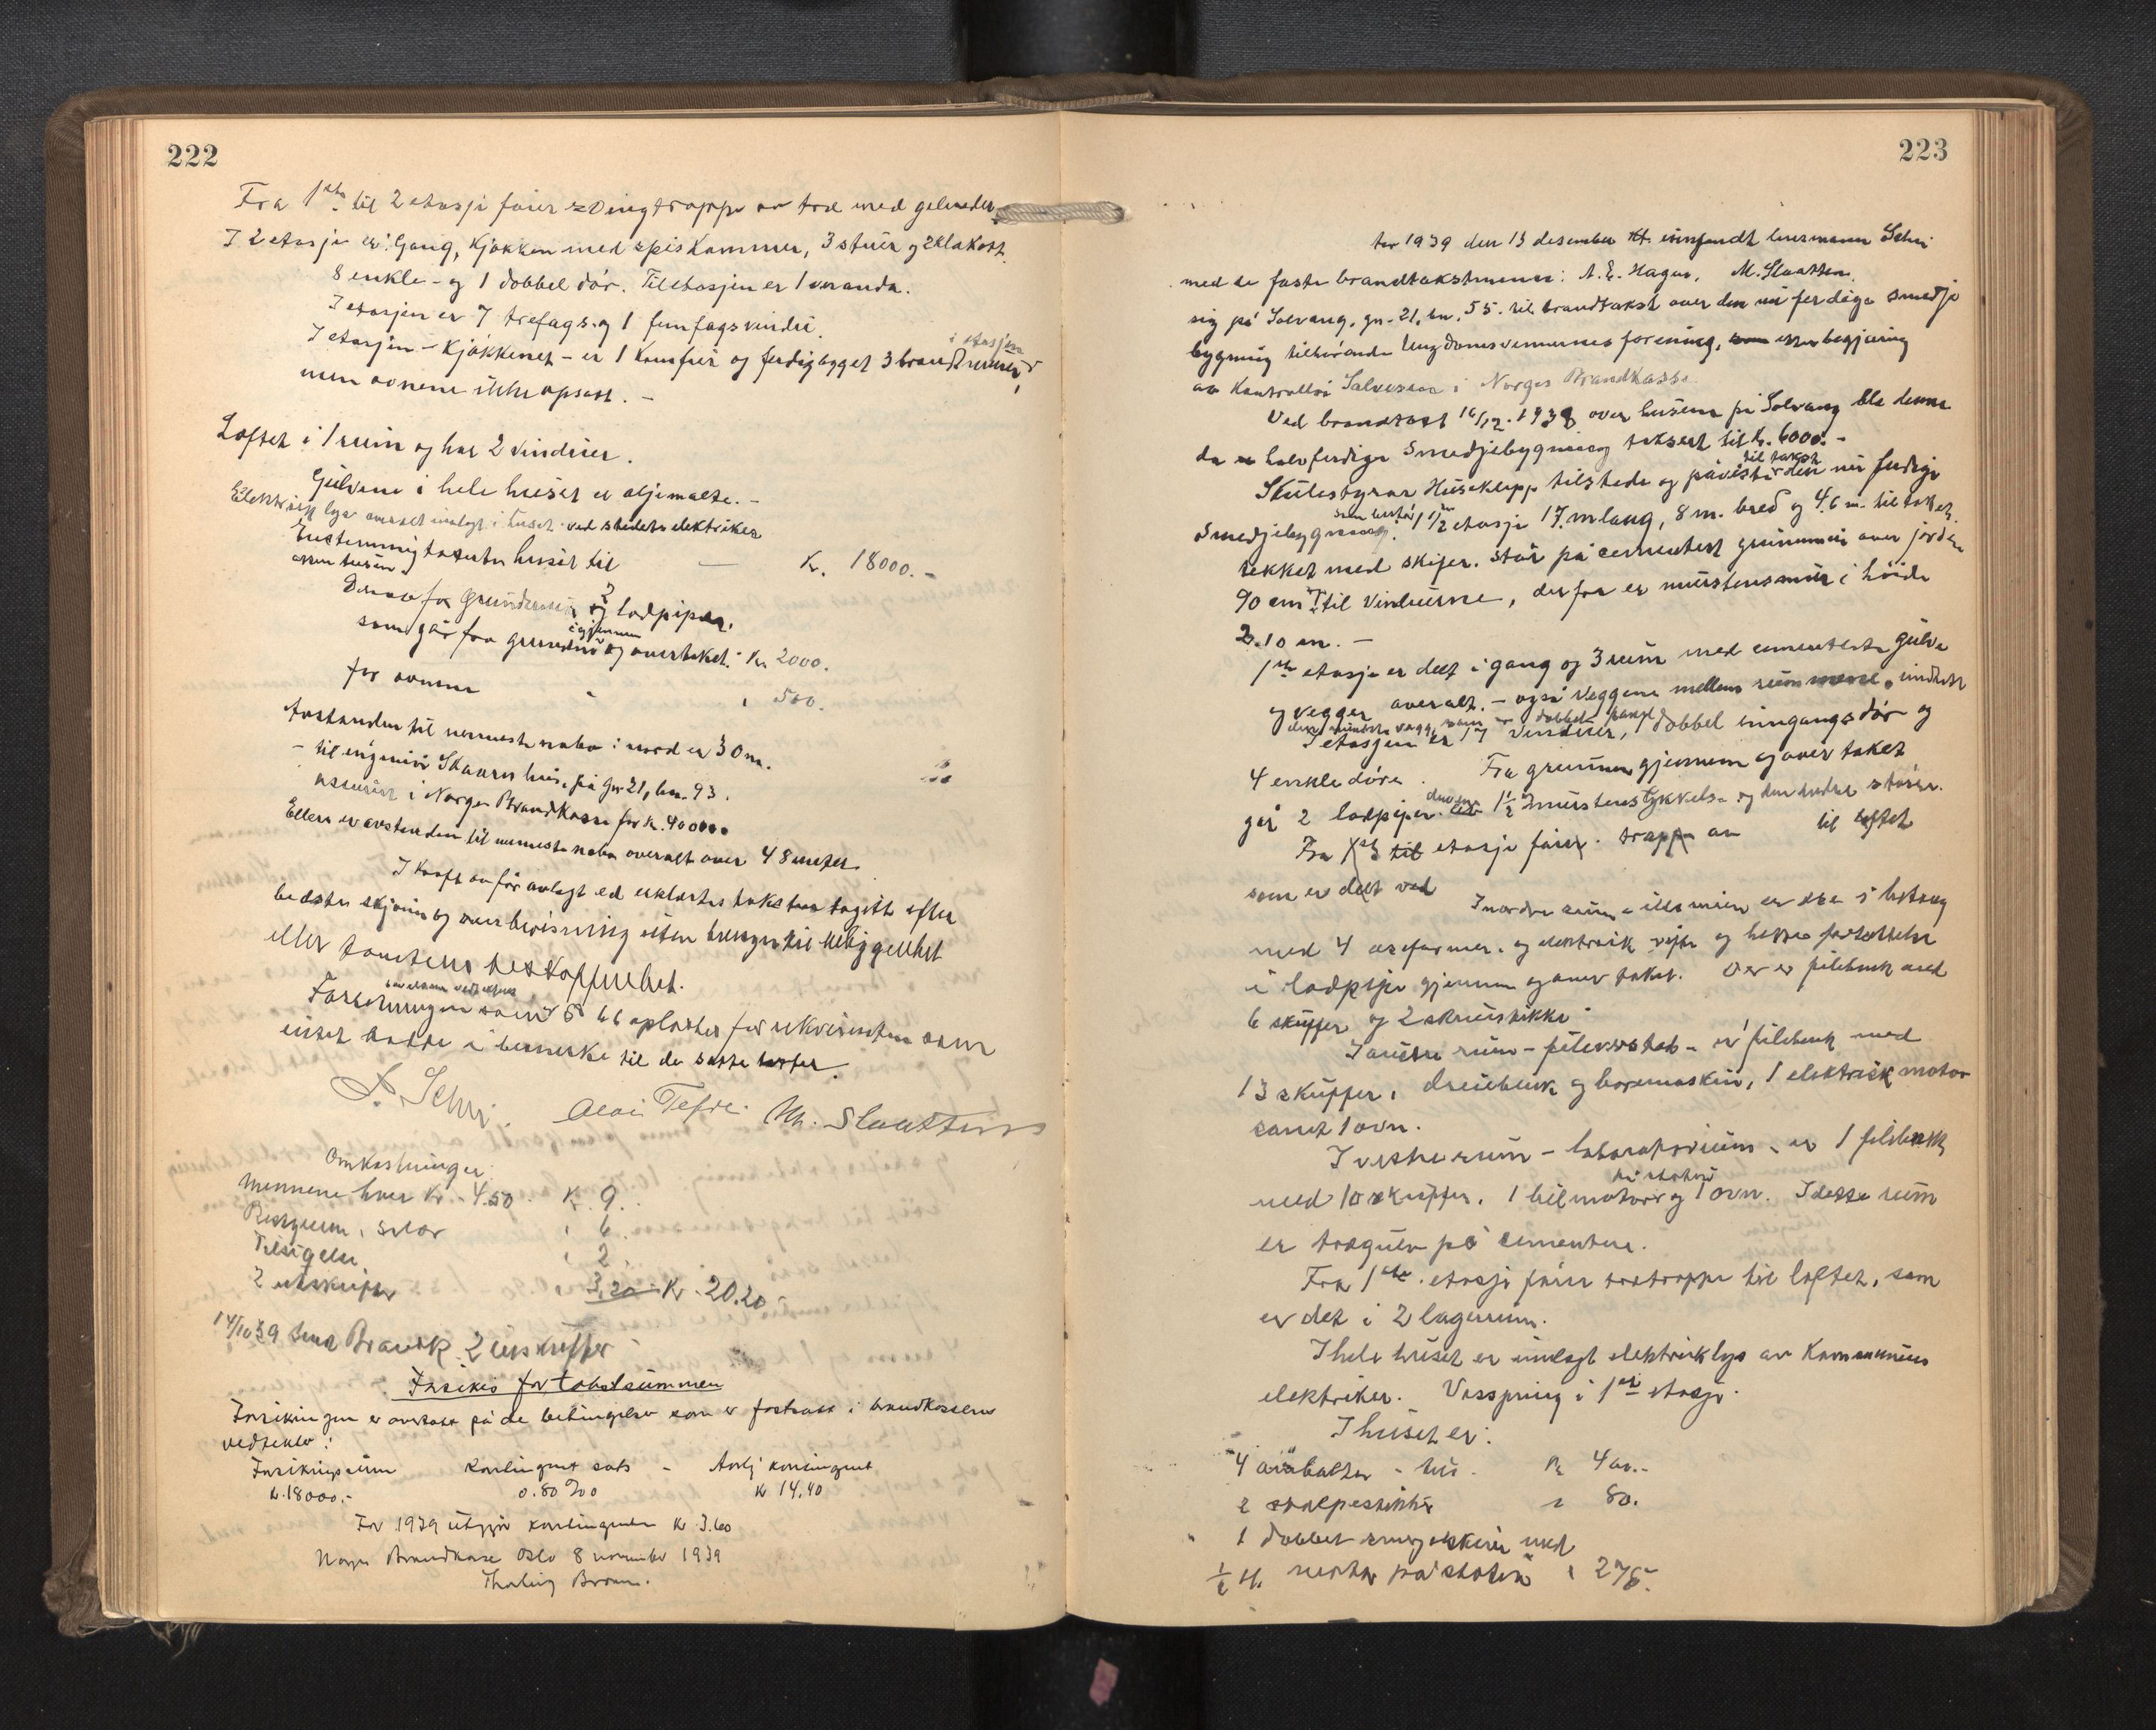 222
Fra 1ste til 2 etasje fører svingtrappe av tre med gelender.
I 2 etasje er: Gang, kjøkken med spiskammer, 3 stuer og 2 klekott.
8 enkle - og 1 dobbel dør. Til etasjen er 1 veranda.
I etasjen er 7 trefags. og 1 femfagsvindu.
i etasjen
I etasjen - kjøkkenet - er 1 komfur og ferdigbygget 3 brandmurer,
men ovnene ikke opsatt. -
Loftet i 1 rum og har 2 vinduer.
Gulvene i hele huset er oljemalte. -
Elektrisk lys overalt innlagt i huset ved stedets elektriker
Enstemmig takserte huset til — Kr. 18000. -
Derav for grundmur og 2 lodpiper,
som går fra grundmur igjennem og over taket. Kr. 2000.
for ovnene " " 500.
Avstanden til nermeste nabo i nord er 30 m.
- til ingeniør Skaars hus, på gn. 21, bn. 93.
assurert i Norges Brandkasse for kr. 40000.
Ellers er avstanden til nermeste nabo overalt over 48 meter.
I kraft av før avlagt ed erklærtes taksten avgitt efter
bedste skjønn og overbevisning uten hensyn til beliggenhet
eller tomtens beskaffenhet.
Forretningen som § 66 oplæstes for rekvirenten som
intet hadde å bemerke til de satte takster.
S. Schei. Olai Tefre. M. Slaatten
Omkostninger:
Mennene hver Kr. 4.50 K. 9.
" 6.
Tilsigelse " 2
2 utskrifter " 3,20 Kr. 20.20
14/10 39 send Brandk. 2 utskrifter
Forsikres for takstsummen
Forsikringen er overtatt på de betingelser som er fastsatt i brandkassens
vedtekter:
Forsikringssum Kontingent sats - Aarlig kontingent
kr. 18000.- 0.80 ‰ kr 14.40
For 1939 utgjør kontingenten kr 3.60
Norges Brandkasse Oslo 8 november 1939
223
Aar 1939 den 13 desember innfandt lensmann Schei
med de faste brandtakstmenn: A. E. Hagen, M. Slaatten.
sig på Solvang, gn. 21, bn. 55. til brandtakst over den nu ferdige smedje
bygning tilhørende Ungdomsvennernes forening, efter begjæring
av Kontrollør Salvesen i Norges Brandkasse
Ved brandtakst 16/12. 1938 over husene på Solvang ble denne
da halvferdige smedjebygning taksert til Kr. 6000. -
til takst
Skulestyrar Huseklepp tilstede og påviste den nu ferdige
smedjebygning. 1 1/2 etasje 17. m lang, 8 m. bred og 4.6 m. til taket,
tekket med skifer. Står på cementert grunnmur over jorden
90 cm. til vinduerne, derfor er murstensmur i høide
2.10 m. -
1ste etasje er delt i gang og 3 rum med cementerte gulve
og vegger overalt. - også veggene mellem rummene, undtatt
I etasjen er 17 vinduer, 1 dobbel inngangsdør og
4 enkle døre. Fra grunnen gjennem og over taket
går 2 lodpiper. den ene 1 1/2 murstens tykkelse og den andre større.
Fra til etasje fører. trapp av til loftet
som er delt ved
I nordre rum er
med 4 æsformer. og elektrisk vifte og
i lodpipe gjennem og over taket. Der er filebenk med
6 skuffer og 2 skruestikke.
I rum - fileverksted - er filebenk med
13 skuffer, dreiebenk og boremaskin, 1 elektrisk motor
samt 1 ovn.
I vestre rum - laboratorium - er 1 filebenk
på stativ
med 10 skuffer. 1 bilmotor og 1 ovn. I dette rum
er trægulv på cementen.
Fra 1ste. etasje fører tretrappe til loftet, som
er delt i 2 lagerrum.
I hele huset er innlagt elektrisk lys av kommunens
elektriker. Vasspring i 1ste etasje.
I huset er:
4 - Kr 400.-
2 " 80.
1 dobbel smergelskive med
1/2 H. motor på stativ " 275.